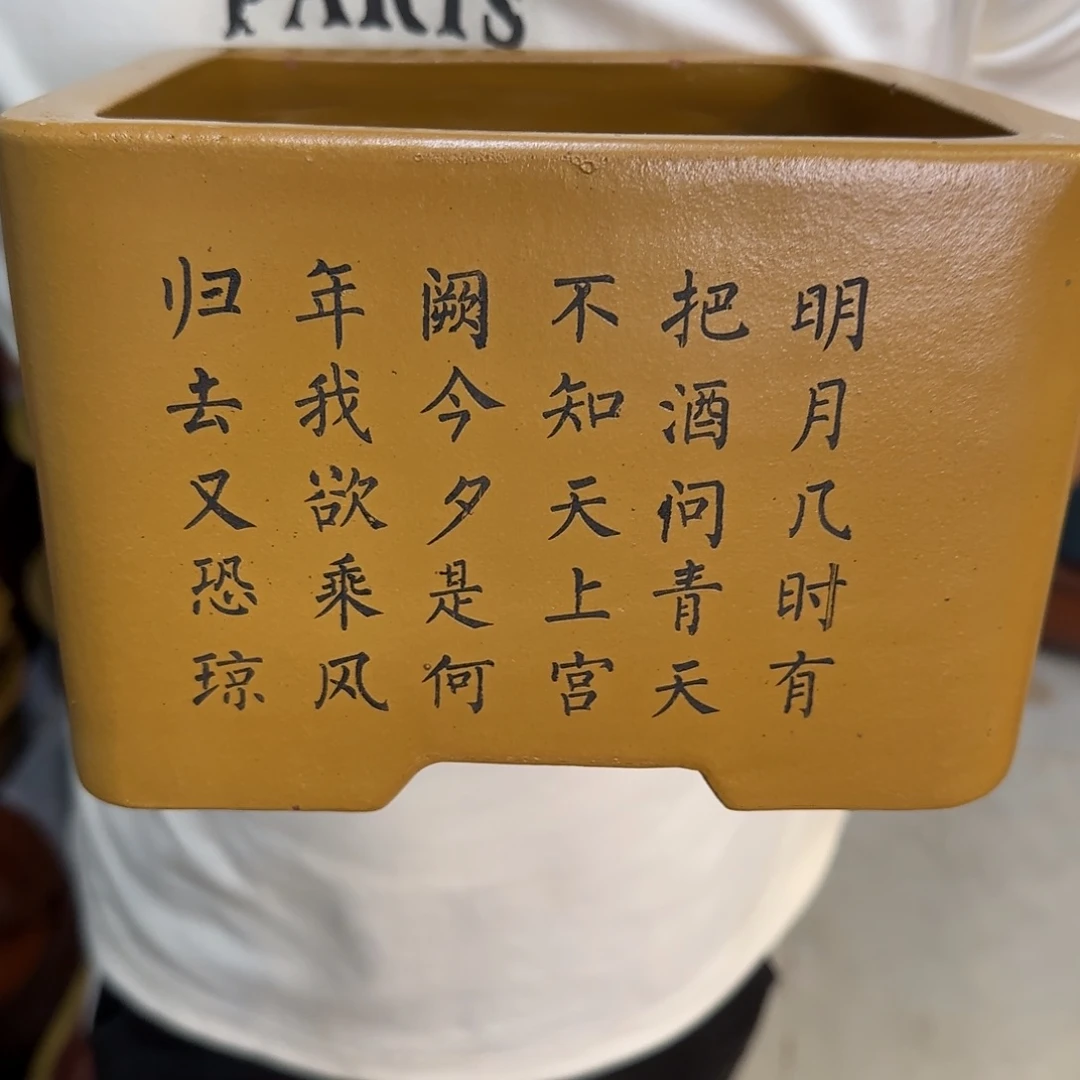 PARIS
明月几时有
把酒问青天
不知天上宫
阙今夕是何
年我欲乘风
归去又恐琼